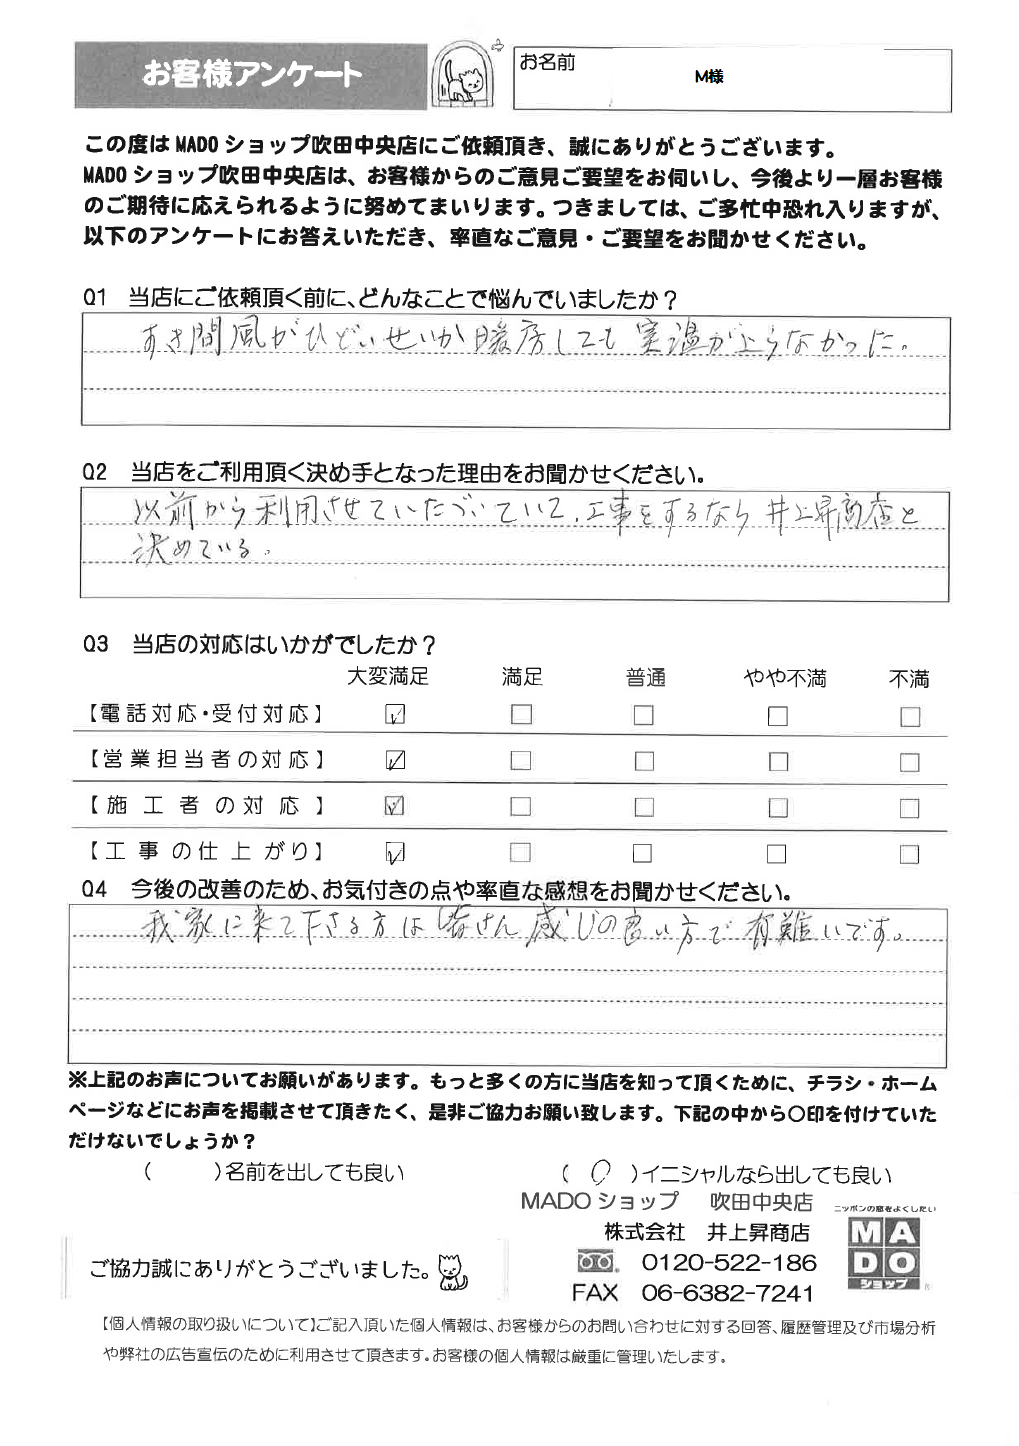 お客様アンケート
お名前
M様
この度は MADO ショップ吹田中央店にご依頼頂き、誠にありがとうございます。
MADO ショップ吹田中央店は、お客様からのご意見ご要望をお伺いし、今後より一層お客様
のご期待に応えられるように努めてまいります。つきましては、ご多忙中恐れ入りますが、
以下のアンケートにお答えいただき、率直なご意見・ご要望をお聞かせください。
Q1 当店にご依頼頂く前に、どんなことで悩んでいましたか？
すき間風がひどいせいか暖房しても実温が上らなかった。
Q2 当店をご利用頂く決め手となった理由をお聞かせください。
以前から利用させていただいていて、工事をするなら井上昇商店と
決めている。
Q3 当店の対応はいかがでしたか？
大変満足 満足 普通 やや不満 不満
【電話対応・受付対応】
【営業担当者の対応】
【施工者の対応】
【工事の仕上がり】
Q4 今後の改善のため、お気付きの点や率直な感想をお聞かせください。
我家に来て下さる方は皆さん感じの良い方で有難いです。
※上記のお声についてお願いがあります。もっと多くの方に当店を知って頂くために、チラシ・ホーム
ページなどにお声を掲載させて頂きたく、是非ご協力お願い致します。下記の中から○印を付けていた
だけないでしょうか？
( )名前を出しても良い ( ○ )イニシャルなら出しても良い
MADO ショップ 吹田中央店
株式会社 井上昇商店
0120-522-186
FAX 06-6382-7241
ニッポンの窓をよくしたい
MADO
ショップ
ご協力誠にありがとうございました。
【個人情報の取り扱いについて】ご記入頂いた個人情報は、お客様からのお問い合わせに対する回答、履歴管理及び市場分析
や弊社の広告宣伝のために利用させて頂きます。お客様の個人情報は厳重に管理いたします。